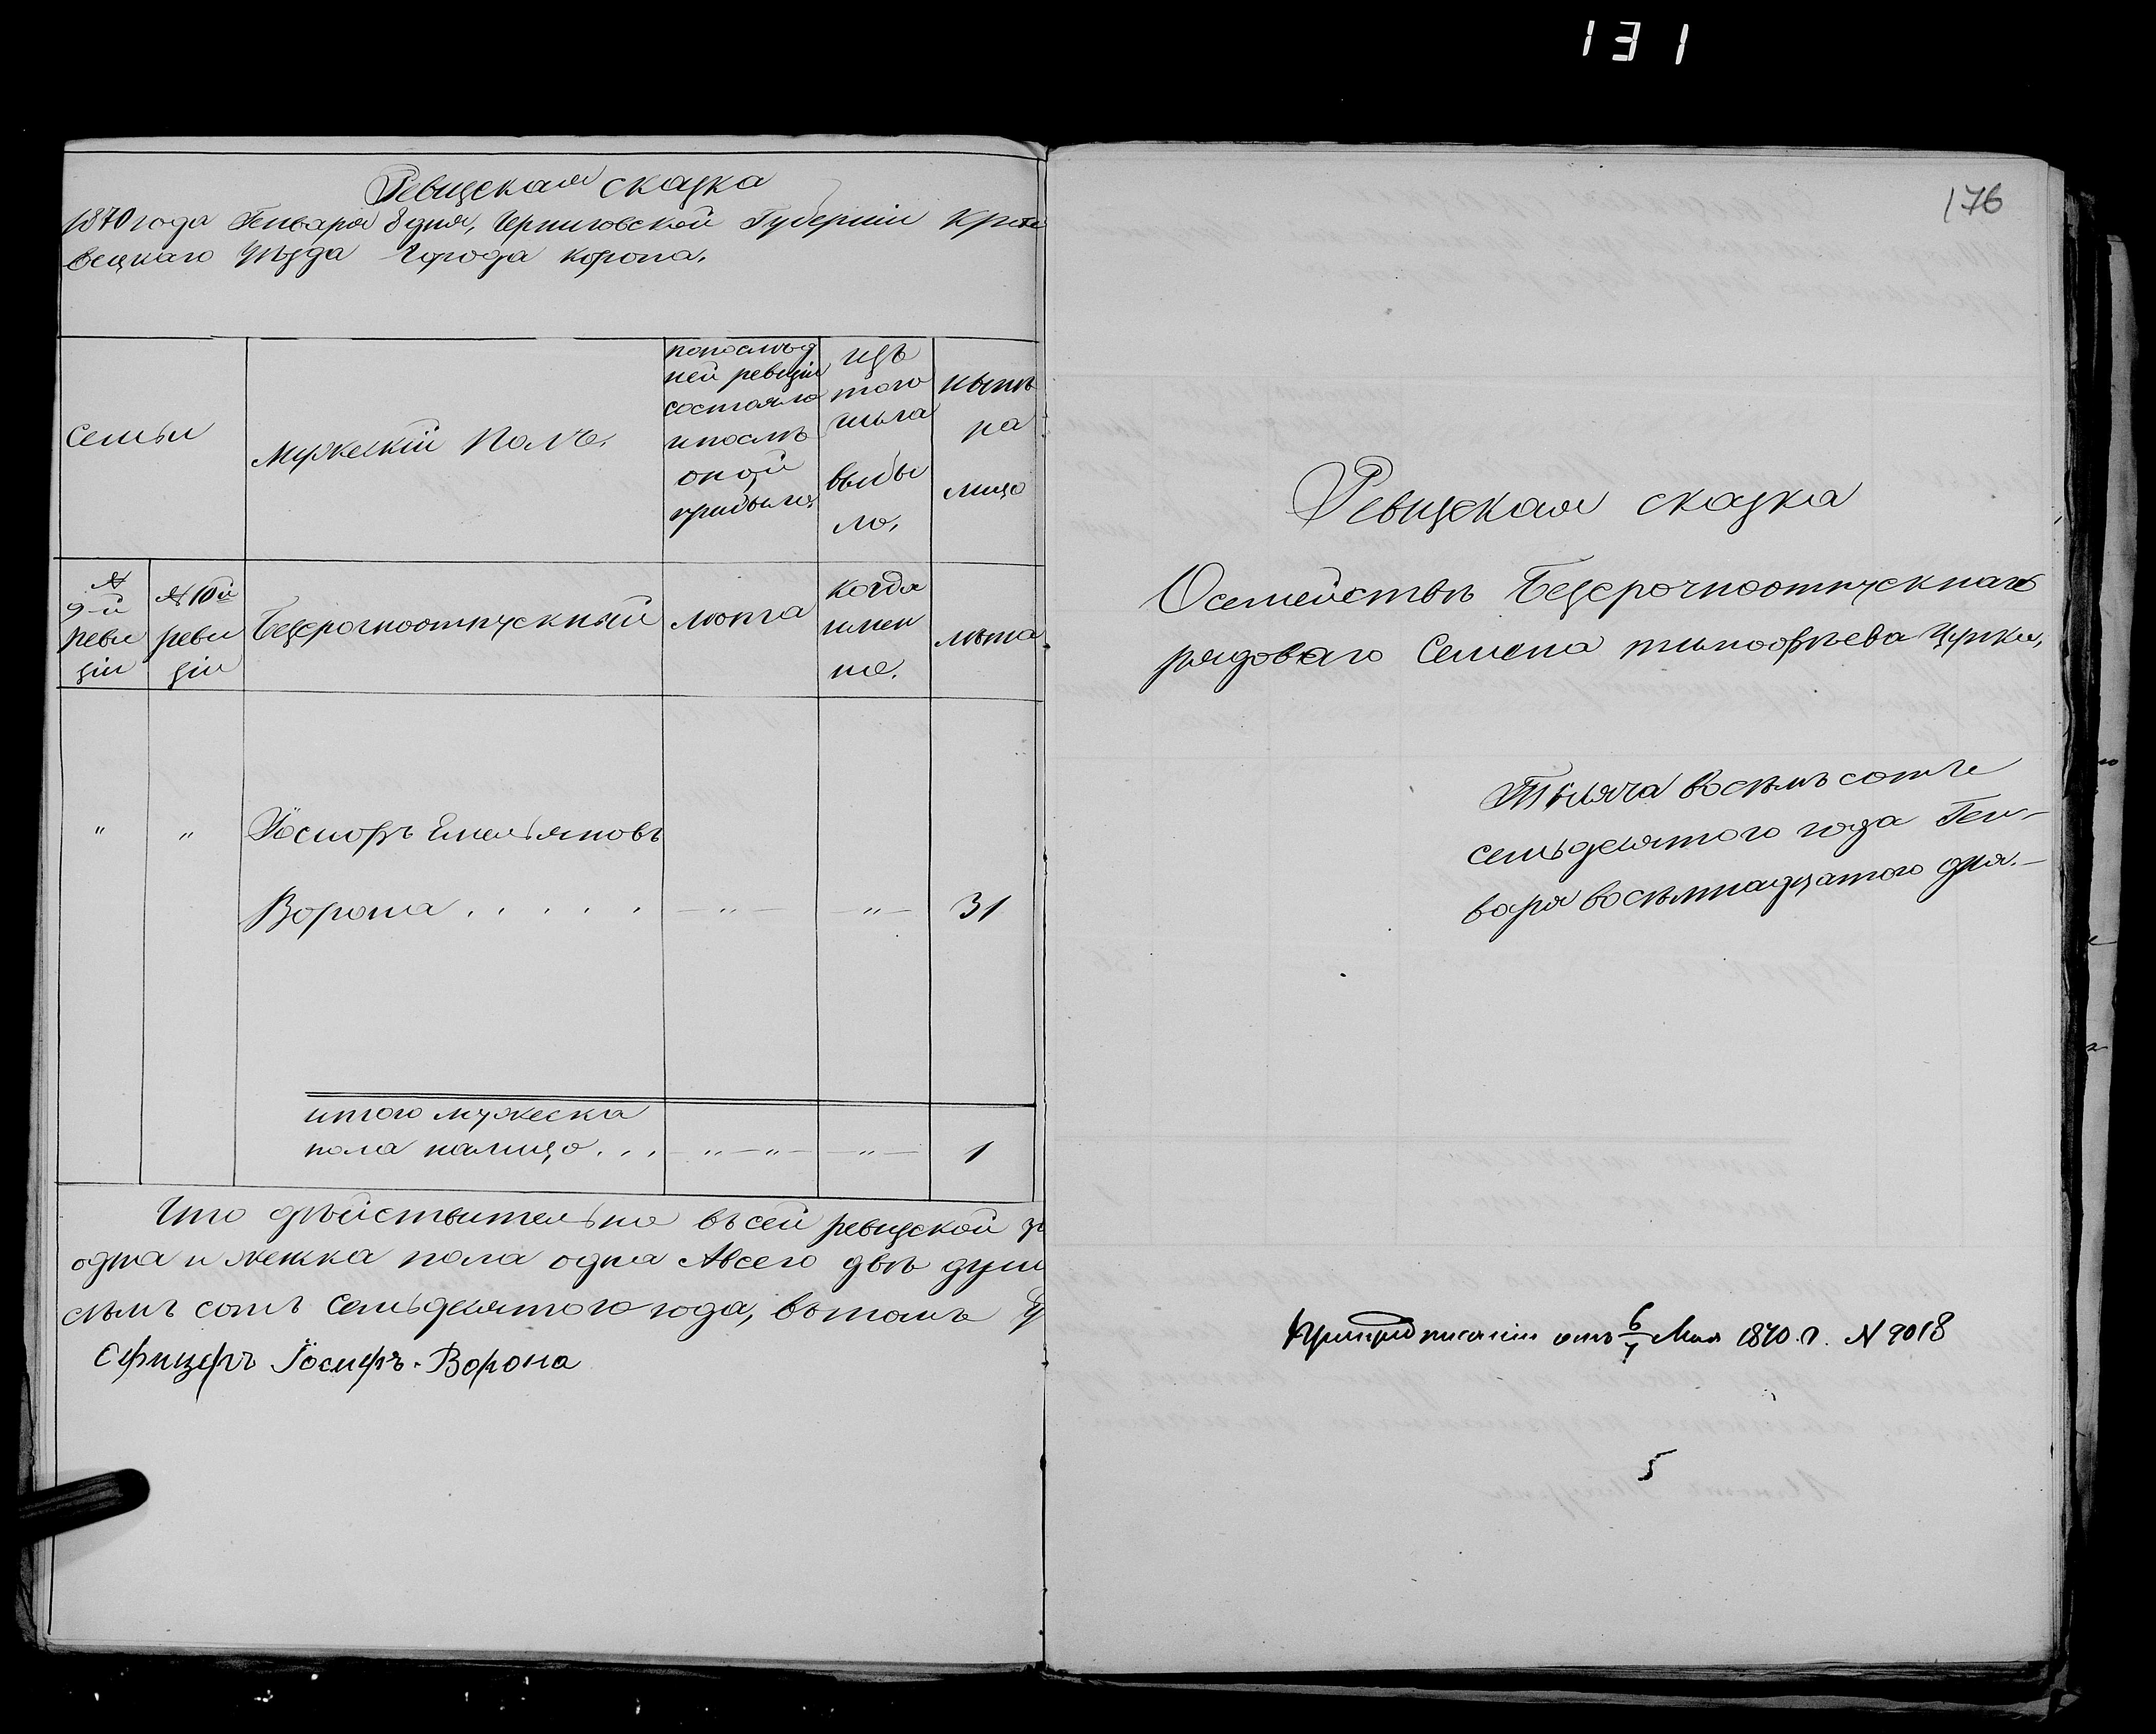 131
Ревизская сказка
1870 года Генваря 8 дня, Черниговской Губерніи Кроле
вецкаго Уѣзда Города Коропа.
Семьи
Мужескій Полъ.
попослѣд
ней ревизіи
состояло
ипослѣ
оной
прибыло,
изъ
того
числа
выбы
ло.
нынѣ
на
лицо
№
9-й
реви
зіи
№ 10й
реви
зіи
Безсрочноотпускный
лѣта
когда
имен
но.
лѣта
" " Іосифъ Емельяновъ
Ворона . . . . . —"— —"— 31
итого мужеска
пола налицо . . . "—"— —"— 1
Что дѣйствительно въсей ревизской
одна и женска пола одна Авсего двѣ души
сѣмъ сотъ Семьдесятого года, въ томъ
Офицеръ Іосифъ Ворона
176
Ревизская сказка
Осемействѣ Безсрочноотпускнаго
рядоваго Семена тимофѣева Цурки,
Тысяча восѣмъ сотъ
семьдесятого года Ген-
варя восѣмнадцатого дня.—
При предписаніи отъ 6/7 Мая 1870 г. № 9018
5